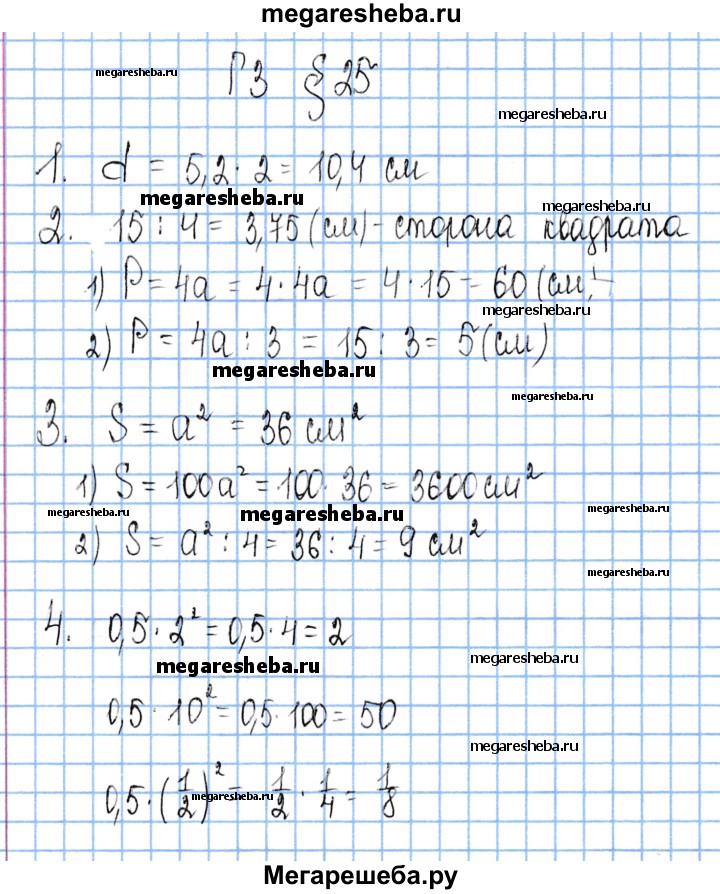 megaresheba.ru
Г3 § 25
megaresheba.ru
megaresheba.ru
1. d = 5,2 · 2 = 10,4 см
megaresheba.ru
megaresheba.ru
2. 15 : 4 = 3,75 (см) - сторона квадрата
1) P = 4a = 4 · 4a = 4 · 15 = 60 (см)
megaresheba.ru
2) P = 4a : 3 = 15 : 3 = 5 (см)
megaresheba.ru
megaresheba.ru
3. S = a² = 36 см²
1) S = 100a² = 100 · 36 = 3600 см²
megaresheba.ru
megaresheba.ru
megaresheba.ru
2) S = a² : 4 = 36 : 4 = 9 см²
megaresheba.ru
4. 0,5 · 2² = 0,5 · 4 = 2
megaresheba.ru
megaresheba.ru
0,5 · 10² = 0,5 · 100 = 50
megaresheba.ru
0,5 · (1/2)² = 1/2 · 1/4 = 1/8
megaresheba.ru
Мегарешеба.ру